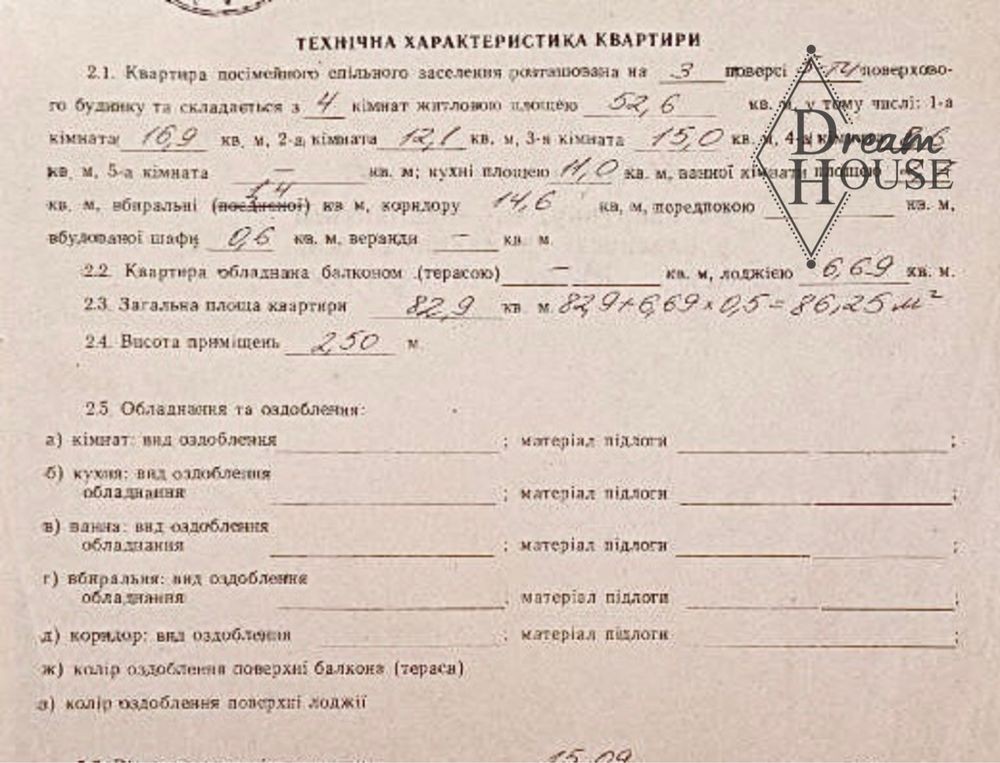 ТЕХНІЧНА ХАРАКТЕРИСТИКА КВАРТИРИ
2.1. Квартира посімейного спільного заселення розташована на 3 поверсі поверхово-
го будинку та складається з 4 кімнат житловою площею 52,6 кв. м, у тому числі: 1-а
кімната 16,9 кв. м, 2-а кімната 12,1 кв. м, 3-я кімната 15,0 кв. м, 4-а
кв. м, 5-а кімната — кв. м; кухні площею 11,0 кв. м, ванної кімнати площею
1,4
кв. м, вбиральні (поєднаної) кв м, коридору 14,6 кв, м, передпокою кв. м,
вбудованої шафи 0,6 кв. м, веранди — кв м.
2.2. Квартира обладнана балконом (терасою) — кв. м, лоджією 6,69 кв. м.
2.3. Загальна площа квартири 82,9 кв м. 82,9+6,69×0,5=86,25 м²
2.4. Висота приміщень 2,50 м.
2.5. Обладнання та оздоблення:
а) кімнат: вид оздоблення ; матеріал підлоги ;
б) кухня: вид оздоблення
обладнання ; матеріал підлоги ;
в) ванна: вид оздоблення
обладнання ; матеріал підлоги ;
г) вбиральня: вид оздоблення
обладнання ; матеріал підлоги ;
д) коридор: вид оздоблення ; матеріал підлоги ;
ж) колір оздоблення поверхні балкона (тераси)
з) колір оздоблення поверхні лоджії
15.09
Dream
HOUSE